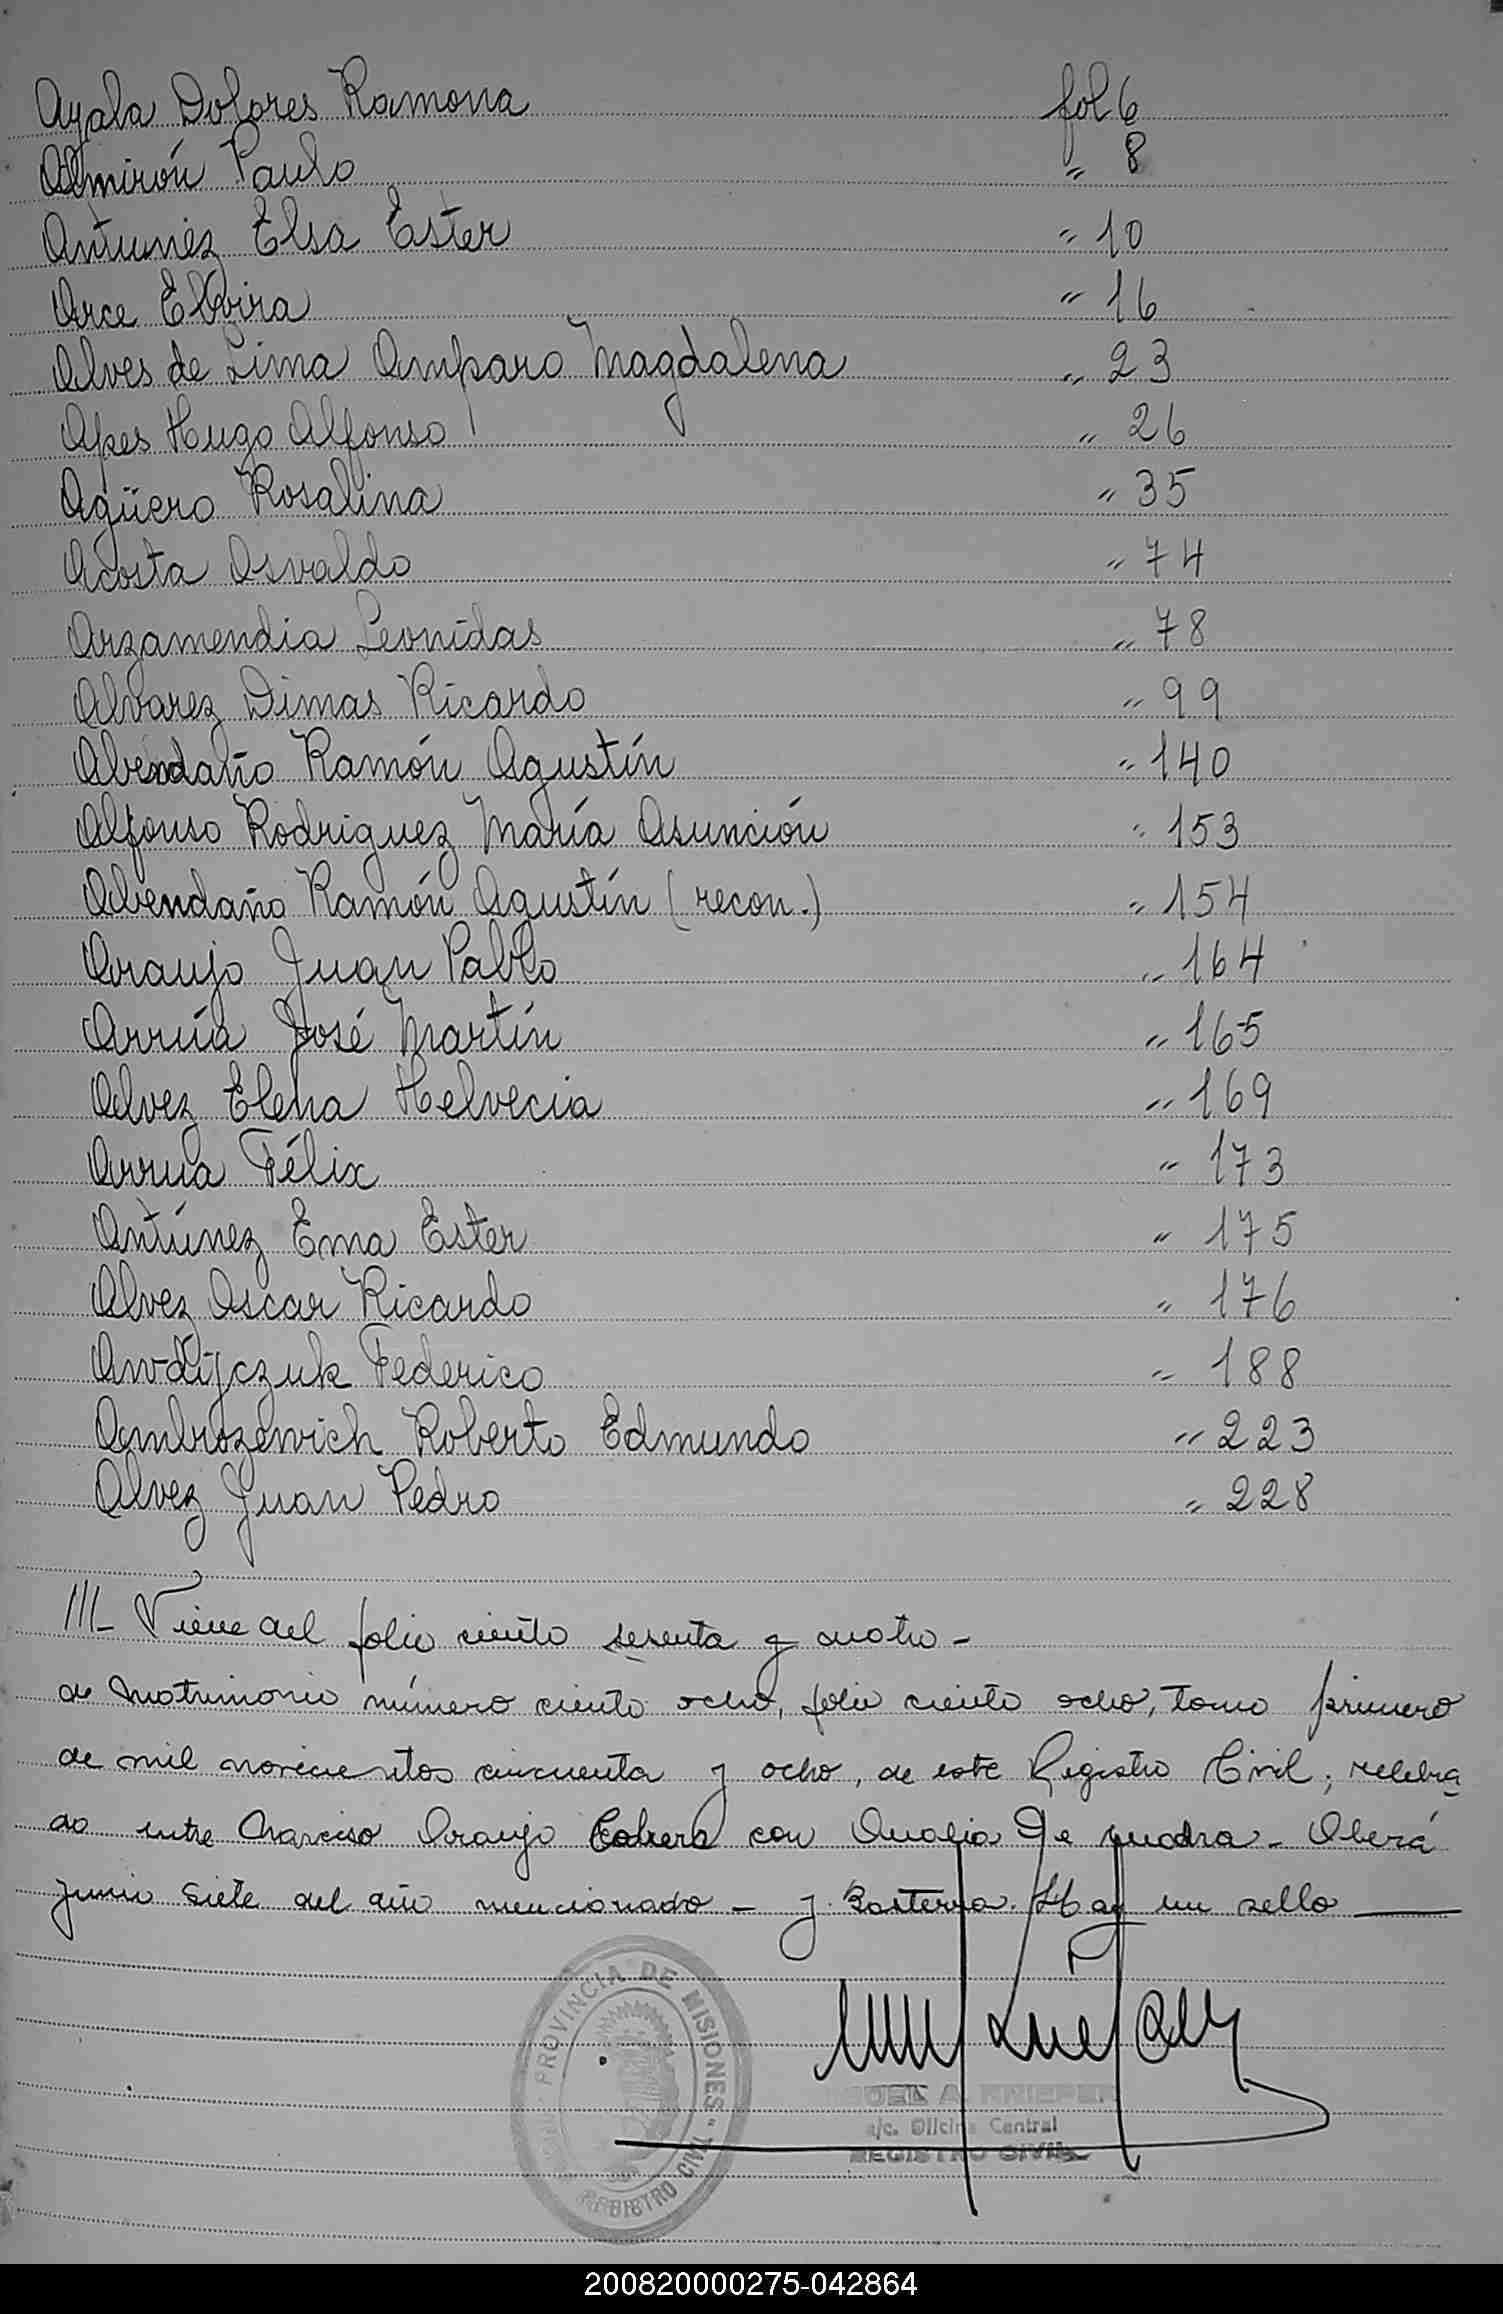 Ayala Dolores Ramona fol 6
Almirón Paulo " 8
Antunez Elsa Ester " 10
Arce Elvira " 16
Alves de Lima Amparo Magdalena " 23
Apes Hugo Alfonso " 26
Agüero Rosalina " 35
Acosta Osvaldo " 74
Arzamendia Leonidas " 78
Alvarez Dimas Ricardo " 99
Abendaño Ramón Agustín " 140
Alfonso Rodriguez María Asunción " 153
Abendaño Ramón Agustín (recon.) " 154
Araujo Juan Pablo " 164
Arrúa José Martín " 165
Alvez Elena Helvecia " 169
Arrua Félix " 173
Antúnez Ema Ester " 175
Alvez Oscar Ricardo " 176
Andijczuk Federico " 188
Ambrozewich Roberto Edmundo " 223
Alvez Juan Pedro " 228
III- Viene del folio ciento sesenta y cuatro -
de matrimonio número ciento ocho, folio ciento ocho, tomo primero
de mil novecientos cincuenta y ocho, de este Registro Civil, celebra
do entre Narciso Araujo Cabrera con De cuadra - Oberá
junio siete del año mencionado - J. Basterra. Hay un sello
PROVINCIA DE MISIONES
REGISTRO CIVIL
a/c. Oficina Central
REGISTRO CIVIL
200820000275-042864